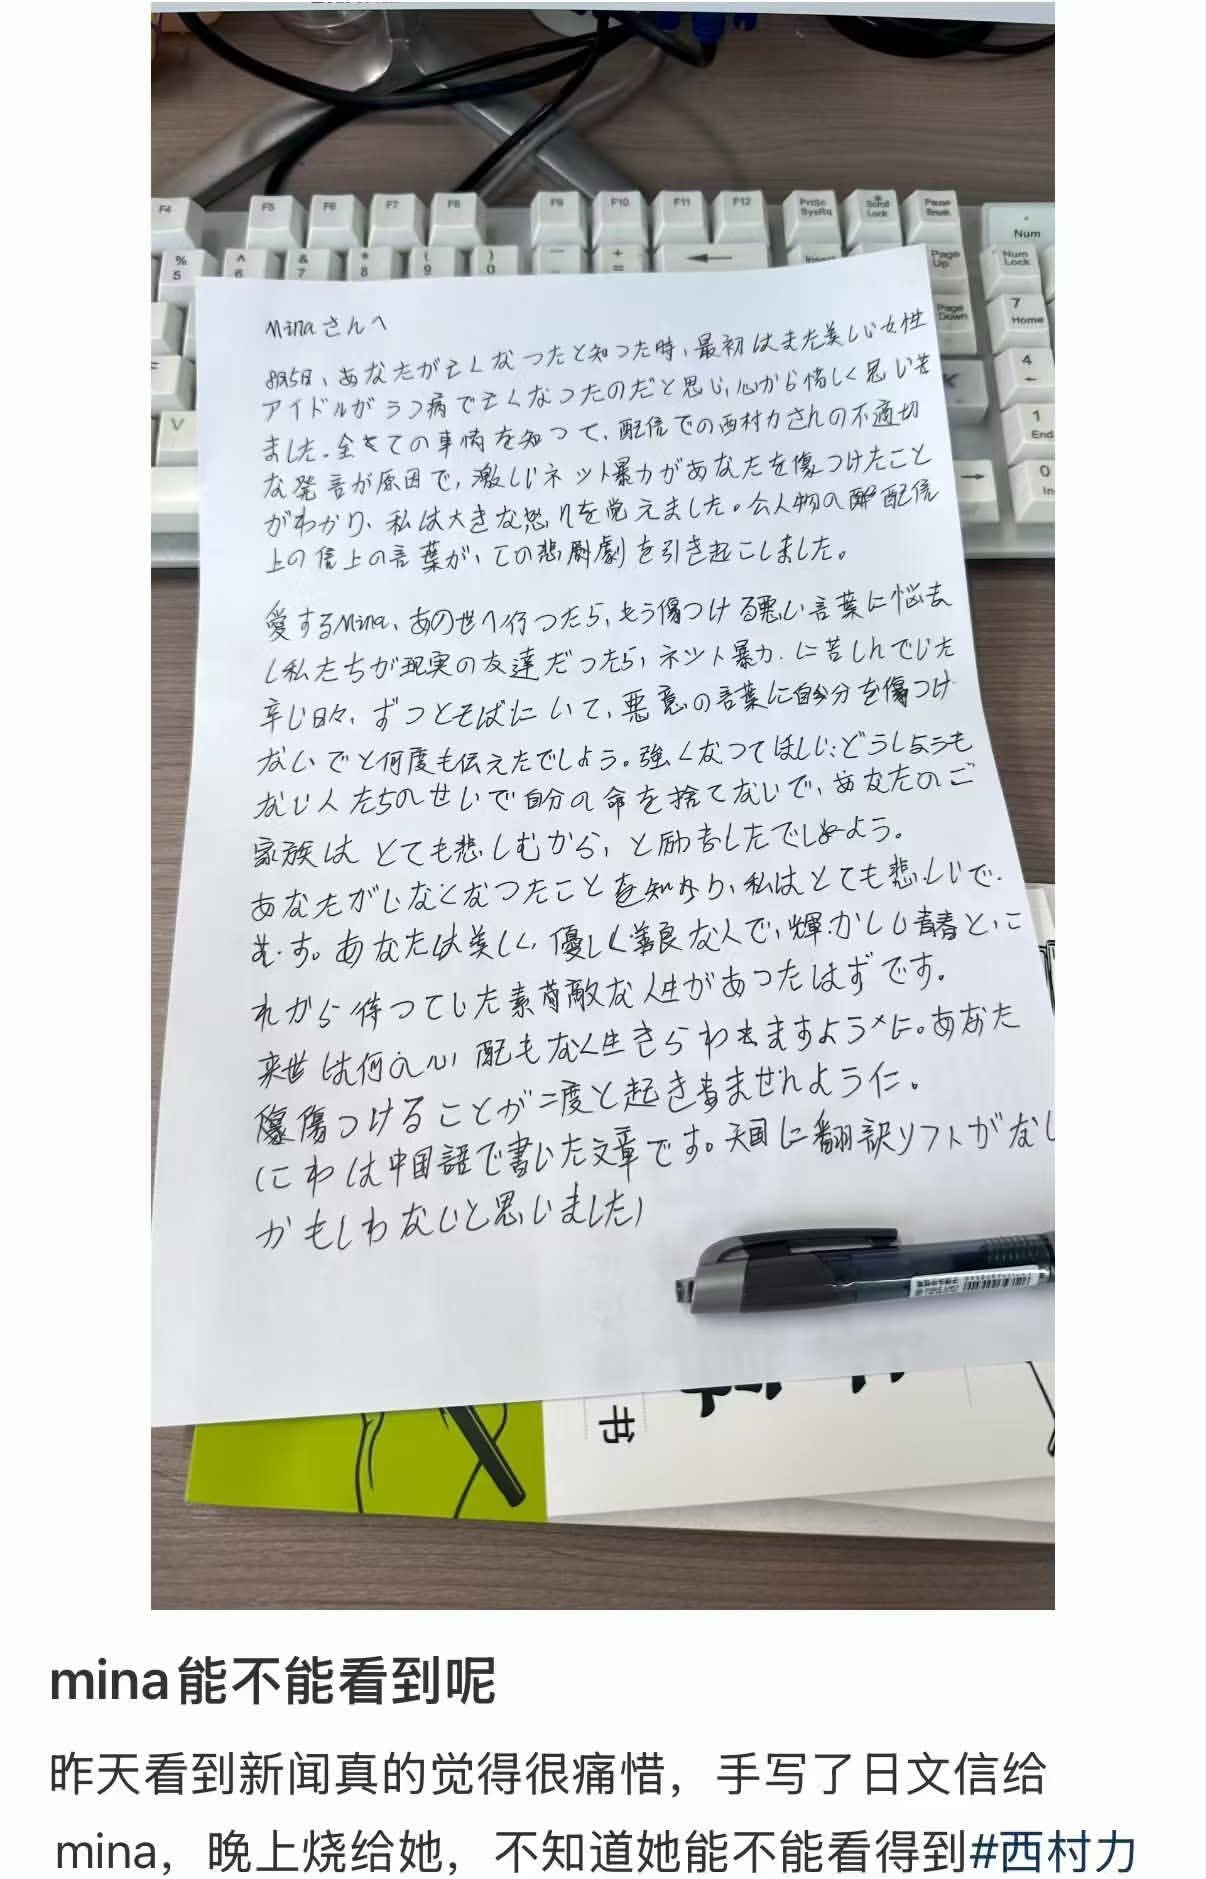 F4 F5 F6 F7 F8 F9 F10 F11 F12 PrtSc SysRq Scroll Lock Pause Break
Num
% 5 ^ 6 & 7 * 8 ( 9 ) 0 + = Page Up Num Lock
Page Down 7 Home
4
1 End
0
V
Minaさんへ
8月5日、あなたが亡くなつたと知つた時、最初はまた美しい女性
アイドルがうつ病で亡くなつたのだと思い、心から惜しく思い
ました。全ての事情を知つて、配信での西村力さんの不適切
な発言が原因で、激しいネット暴力があなたを傷つけたこと
がわかり、私は大きな怒りを覚えました。公人物の配信
上の言葉が、この悲劇を引き起こしました。
愛するMina、あの世へ行つたら、もう傷つける悪い言葉に悩
私たちが現実の友達だつたら、ネット暴力に苦しんでいた
辛い日々、ずつとそばにいて、悪意の言葉に自分を傷つけ
ないでと何度も伝えたでしよう。強くなつてほしい:どうしようも
ない人たちのせいで自分の命を捨てないで、あなたのご
家族はとても悲しむから、と励ましたでしよう。
あなたがいなくなつたことを知り、私はとても悲しいで
す。あなたは美しく、優しく善良な人で、輝かしい青春と、こ
れから待つていた素敵な人生があつたはずです。
来世は何の心配もなく生きられますように。あなた
傷つけることが二度と起きませんように。
(これは中国語で書いた文章です。天国に翻訳ソフトがない
かもしれないと思いました)
书
mina能不能看到呢
昨天看到新闻真的觉得很痛惜，手写了日文信给
mina，晚上烧给她，不知道她能不能看得到#西村力